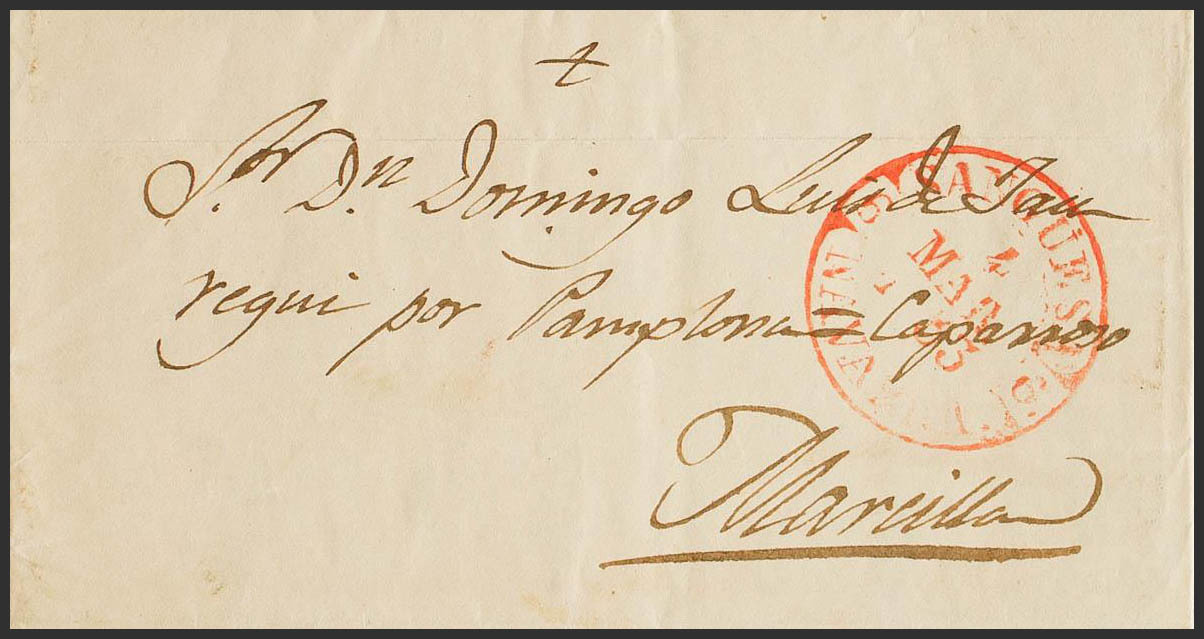 Sor. Dn. Domingo Luis de Jau
regui por Pamplona = Caparroso
Marcilla
SANGÜESA
4
MAR